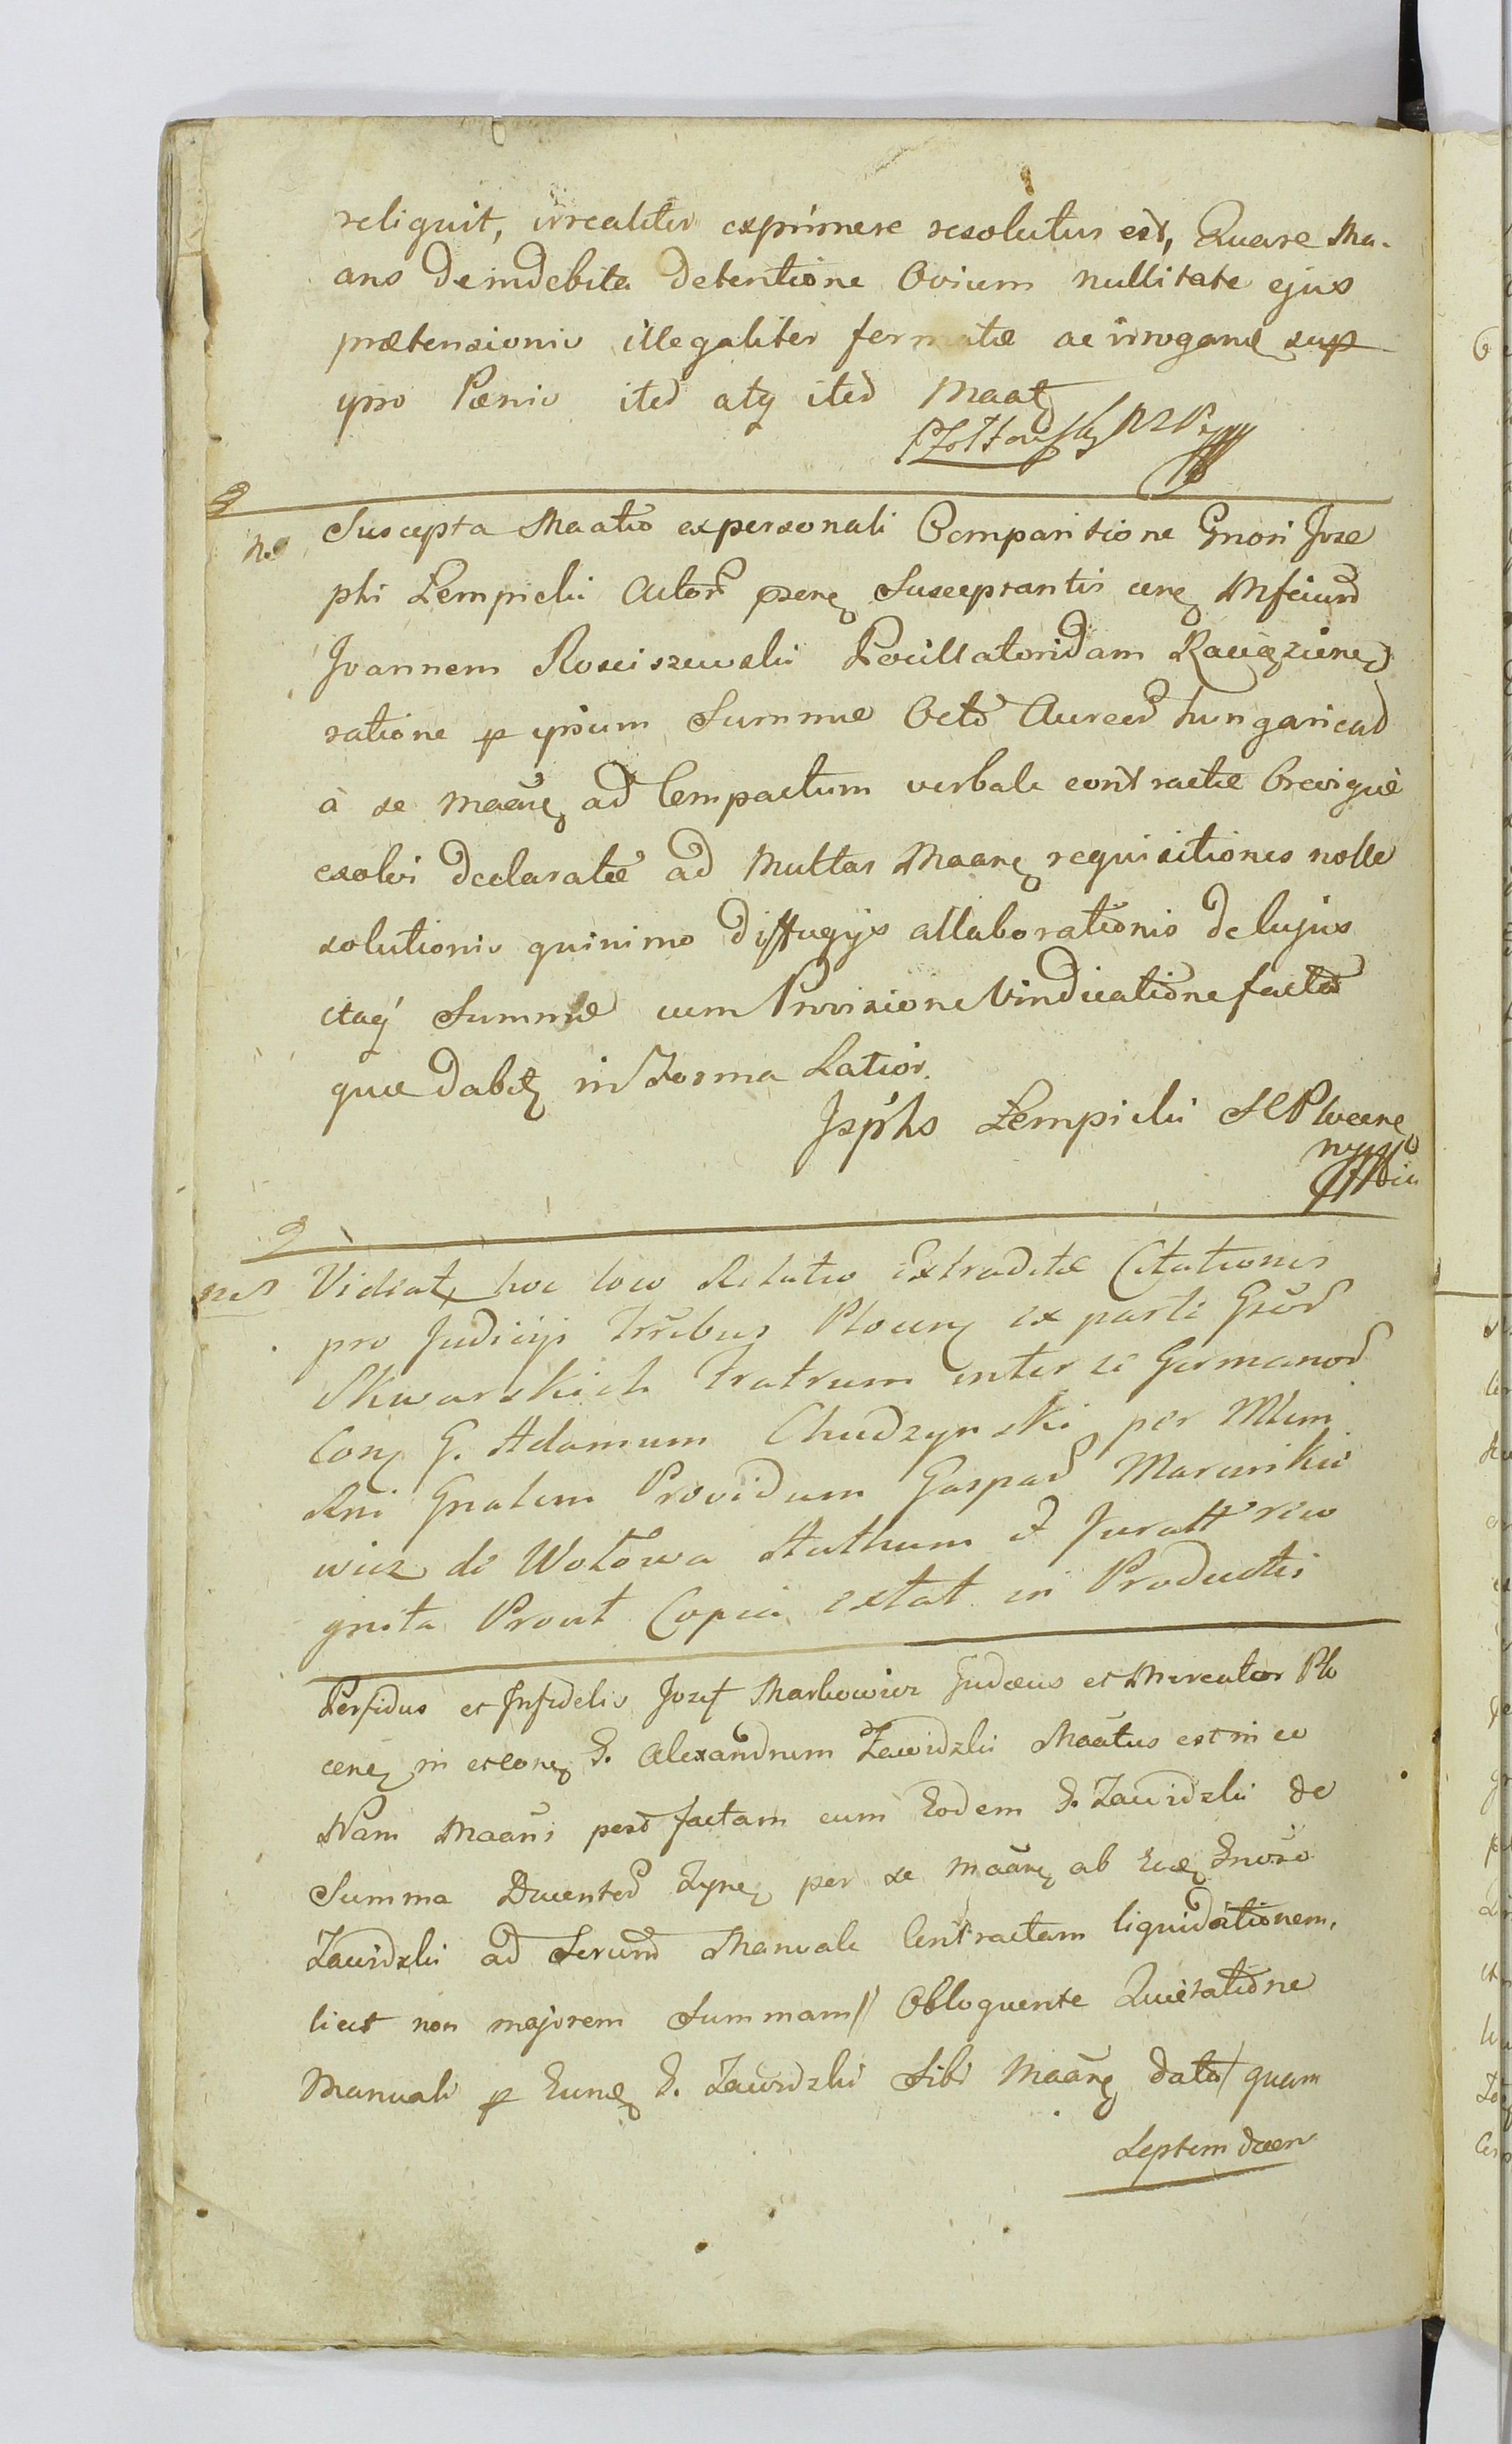 reliquit, irrealiter exprimere resolutus est, Quare Ma-
ans de indebita detentione Ovium nullitate ejus
prætensionis illegaliter formatæ ac irrogand sup
ipso Pœnis ited atq ited Maat
Suscepta Maatio ex personali Comparitione Gnosi Joze
phi Łempicki Actor Susceptantis
Joannem Rosciszewski Pocillatoridam Raciązine
ratione p ipsum Summæ Octo Aureed hungaricad
à se maane ad Compactum verbale contractæ brevique
exolvi declaratæ ad Multas Maane requisitiones nolle
solutionis quinimo diffugijs allaborationis de hujus
itaq Summæ cum Provisione Vindicatione facta
quæ dabit in Forma Latior.
Jsphs Łempicki
Videat hoc loco Relatio Extraditæ Citationis
pro Judicijs Trribus Plocen ex parte
Skwarskich Fratrum inter se Germanod
Con G. Adamum Chudzynski per Mlem
Rni Gnalem Providum Gaspad Marcinkie
wicz de Wołowa Authum et Juratt reco
gnita Prout Copia extat in Productis
Perfidus et Infidelis Jozef Markowicz Judæus et Mercator Plo
cene in et cone G. Alexandrum Zawidzki Maatus est in eo
Nam Maans post factam cum Eodem G. Zawidzki de
Summa Ducented Tyne per se maane ab Gnoso
Zawidzki ad Manuale Contractam liquidationem,
licet non majorem Summam Obloquente Quietatione
Manuali p Eund G. Zawidzki Sibi Maane data quam
Septem dcen